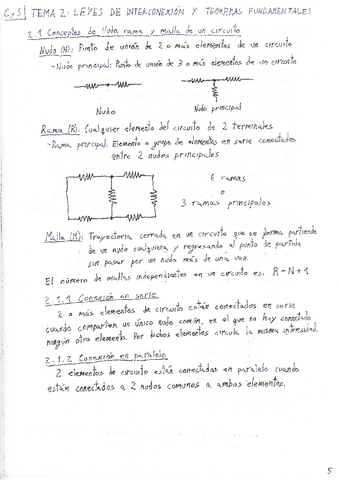 C y S | TEMA 2: LEYES DE INTERCONEXIÓN Y TEOREMAS FUNDAMENTALES
2.1 Conceptos de Nudo, rama y malla de un circuito
Nudo (N): Punto de unión de 2 o más elementos de un circuito
- Nudo principal: Punto de unión de 3 o más elementos de un circuito
Nudo Nudo principal
Rama (R): Cualquier elemento del circuito de 2 terminales
- Rama principal: Elemento o grupo de elementos en serie conectados
entre 2 nudos principales
6 ramas
o
3 ramas principales
Malla (M): Trayectoria cerrada en un circuito que se forma partiendo
de un nudo cualquiera y regresando al punto de partida
sin pasar por un nudo más de una vez.
El número de mallas independientes en un circuito es: R-N+1
2.1.1 Conexión en serie
2 o más elementos de circuito están conectados en serie
cuando comparten un único nudo común, en el que no hay conectado
ningún otro elemento. Por dichos elementos circula la misma intensidad.
2.1.2 Conexión en paralelo
2 elementos de circuito están conectados en paralelo cuando
están conectados a 2 nudos comunes a ambos elementos.
5